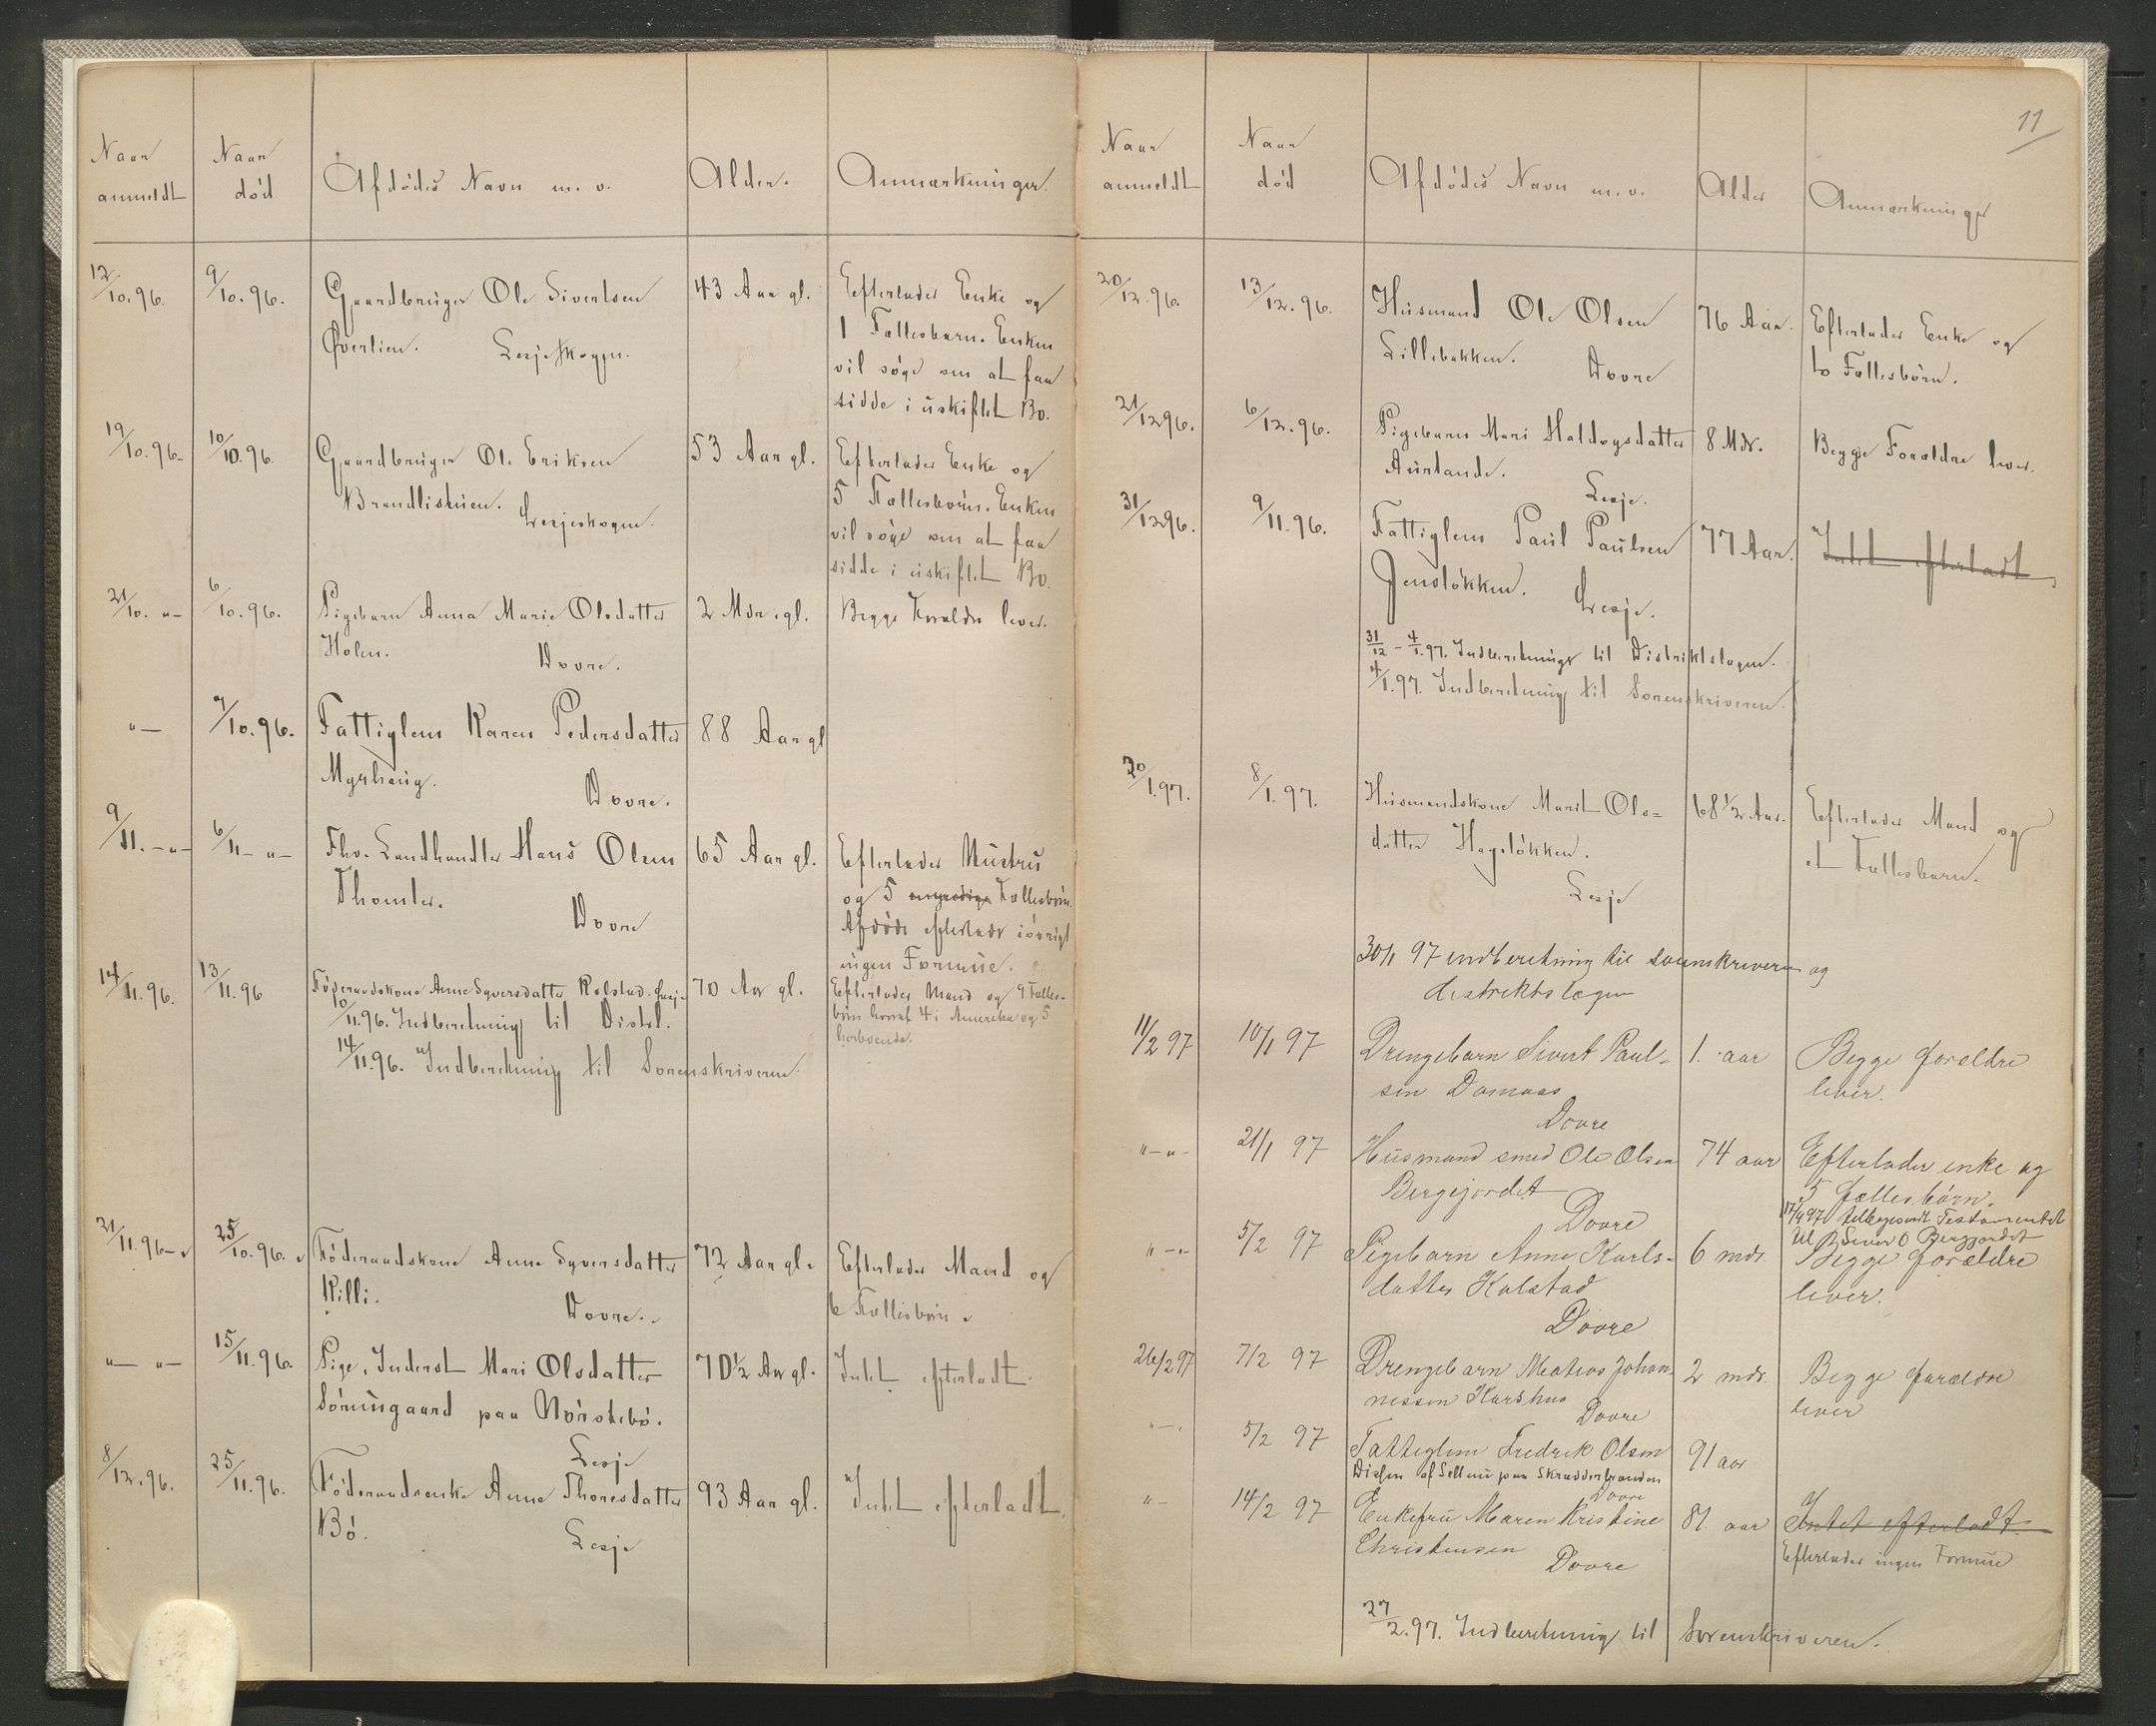 Naar anmeldt
Naar død
Afdødes Navn m.v.
Alder.
Anmærkninger.
12/10.96. 9/10.96. Gaardbruger Ole Sivertsen 43 Aar gl. Efterlader Enke og
Øverlien. Lesjeskogen. 1 Fællesbarn. Enken
vil søge om at faa
sidde i uskiftet Bo.
19/10.96. 10/10.96. Gaardbruger Ole Eriksen 53 Aar gl. Efterlader Enke og
Brandlistuen. Lesjeskogen. 5 Fællesbørn. Enken
vil søge om at faa
sidde i uskiftet Bo.
21/10. „— 6/10.96. Pigebarn Anna Marie Olsdatter 2 Mdr. gl. Begge Forældre lever.
Holen. Dovre.
„— 7/10.96. Fattiglem Karen Pedersdatter 88 Aar gl
Myrhaug. Dovre.
9/11.—„— 6/11—„— Fhv. Landhandler Hans Olsen 65 Aar gl. Efterlader Hustru
Thomler. Dovre og 5 Fællesbørn.
Afdøde efterlader iøvrigt
ingen Formue.
14/11.96. 13/11.96 Føderaadskone Anne Syversdatter Rolstad. Lesje 70 Aar gl. Efterlader Mand og 9 Fælles-
10/11.96. Indberetning til Distrl. børn hvoraf 4 i Amerika og 5
14/11.96. Indberetning til Sorenskriveren. herboende.
21/11.96 25/10.96. Føderaadskone Anne Syversdatter 72 Aar gl. Efterlader Mand og
Killi. Dovre. 6 Fællesbørn.
„— „— 15/11.96. Pige, Inderst Mari Olsdatter 70½ Aar gl. Intet efterladt.
Sørumgaard paa Nørstebø.
Lesje
8/12.96. 25/11.96. Føderaadsenke Anne Thoresdatter 93 Aar gl. Intet efterladt.
Bø. Lesje
11
Naar anmeldt
Naar død
Afdødes Navn m.v.
Alder
Anmærkninger
20/12.96. 13/12.96. Husmand Ole Olsen 76 Aar. Efterlader Enke og
Lillebakken. Dovre to Fællesbørn.
21/12 96. 6/12.96. Pigebarn Mari Haldogsdatter 8 Mdr. Begge Forældre lever.
Aurlande. Lesje.
31/12 96. 9/11.96. Fattiglem Paul Paulsen 77 Aar. Intet efterladt
Jensløkken. Lesje.
31/12 – 4/1.97. Indberetninger til Distriktslægen.
4/1.97. Indberetning til Sorenskriveren.
20/1.97. 8/1.97. Husmandskone Marit Ols= 68½ Aar. Efterlader Mand og
datter Hageløkken. et Fællesbarn.
Lesje
30/1 97 indberetning til sorenskriveren og
distriktslægen
11/2 97 10/1 97 Drengebarn Sivert Paul- 1. aar Begge forældre
sen Domaas lever.
Dovre
„—„— 21/1 97 Husmand smed Ole Olsen 74 aar Efterlader enke og
Bergejordet 5 fællesbørn.
Dovre 17/4 97 Testamentet
til Bergjordet
„—„ 5/2 97 Pigebarn Anne Karls- 6 mdr. Begge forældre
datter Kolstad lever.
Dovre
26/2 97 7/2 97 Drengebarn Mathias Johan- 2 mdr. Begge forældre
nessen Karshus Dovre lever
„—„ 5/2 97 Fattiglem Fredrik Olsen 91 aar
af Sellau paa Skrædderbranden
Dovre
„— 14/2 97 Enkefru Maren Kristine 81. aar Intet efterladt.
Christensen Dovre Efterlader ingen Formue
27/2.97. Indberetning til Sorenskriveren.